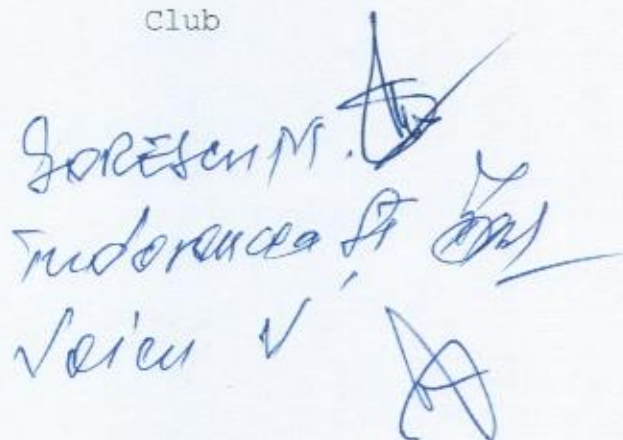 Club
SORESCU M.
Tudorancea Șt
Voicu V